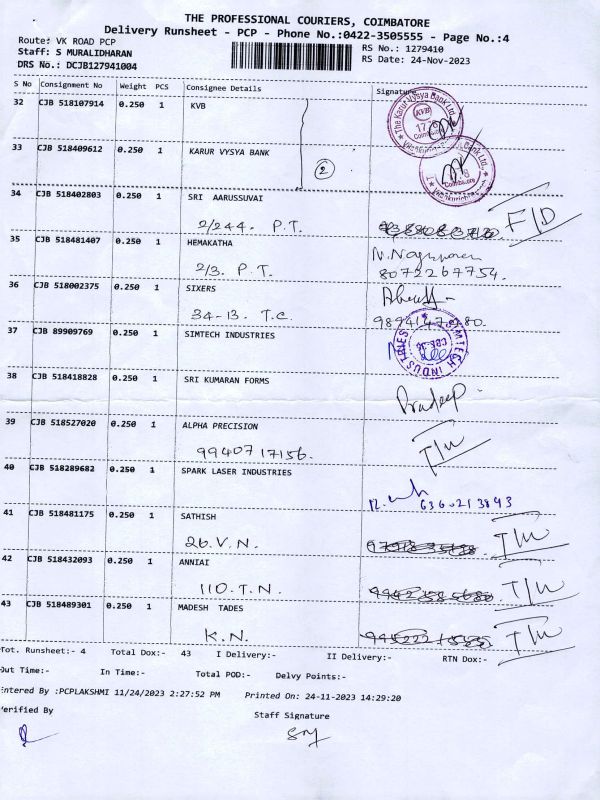 THE PROFESSIONAL COURIERS, COIMBATORE
Delivery Runsheet - PCP - Phone No.:0422-3505555 - Page No.:4
Route: VK ROAD PCP
RS No.: 1279410
Staff: S MURALIDHARAN
RS Date: 24-Nov-2023
DRS No.: DCJB127941004
S No Consignment No Weight PCS Consignee Details Signature
32 CJB 518107914 0.250 1 KVB
33 CJB 518409612 0.250 1 KARUR VYSYA BANK
2
34 CJB 518402803 0.250 1 SRI AARUSSUVAI
2/244. P.T. F/D
35 CJB 518481407 0.250 1 HEMAKATHA
2/3. P.T. 8072267754.
36 CJB 518002375 0.250 1 SIXERS
34-13. T.C.
37 CJB 89909769 0.250 1 SIMTECH INDUSTRIES
SIMTECH INDUSTRIES
38 CJB 518418828 0.250 1 SRI KUMARAN FORMS
Pradeep
39 CJB 518527020 0.250 1 ALPHA PRECISION
9940717156.
40 CJB 518289682 0.250 1 SPARK LASER INDUSTRIES
6360213893
41 CJB 518481175 0.250 1 SATHISH
26. V.N.
42 CJB 518432093 0.250 1 ANNIAI
110. T.N.
43 CJB 518489301 0.250 1 MADESH TADES
K.N.
Tot. Runsheet:- 4 Total Dox:- 43 I Delivery:- II Delivery:- RTN Dox:-
Out Time:- In Time:- Total POD:- Delvy Points:-
Entered By :PCPLAKSHMI 11/24/2023 2:27:52 PM Printed On: 24-11-2023 14:29:20
Verified By
Staff Signature